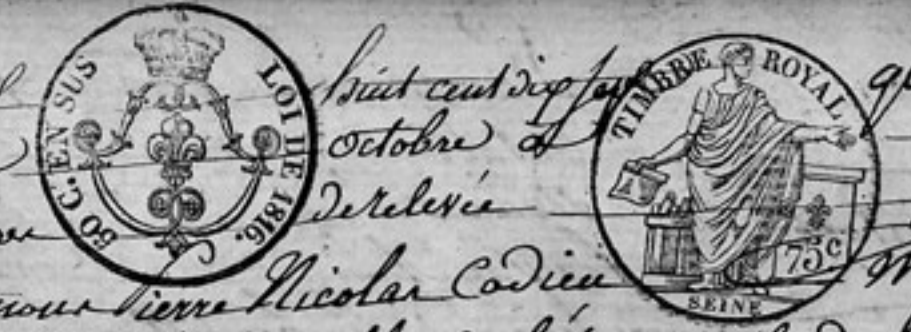 50 C. EN SUS
LOI DE 1816.
TIMBRE ROYAL
75c
SEINE
huit cent dix sept
octobre a
de relevée
nous Pierre Nicolas Cadieu